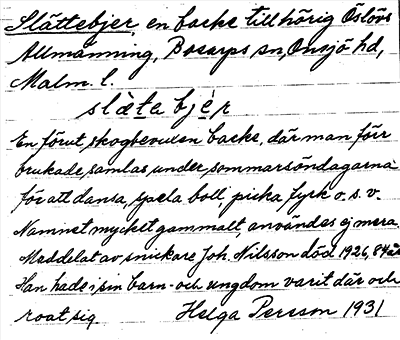 Slättebjer, en backe tillhörig Öslövs
Allmänning, Bosarps sn, Onsjö hd,
Malm. l.
slàtebjèr
En förut skogbevuxen backe, där man förr
brukade samlas under sommarsöndagarna
för att dansa, spela boll, picka fyrk o.s.v.
Namnet mycket gammalt användes ej mera.
Meddelat av snickare Joh. Nilsson död 1926, 84 år
Han hade i sin barn- och ungdom varit där och
roat sig. Helga Persson 1931